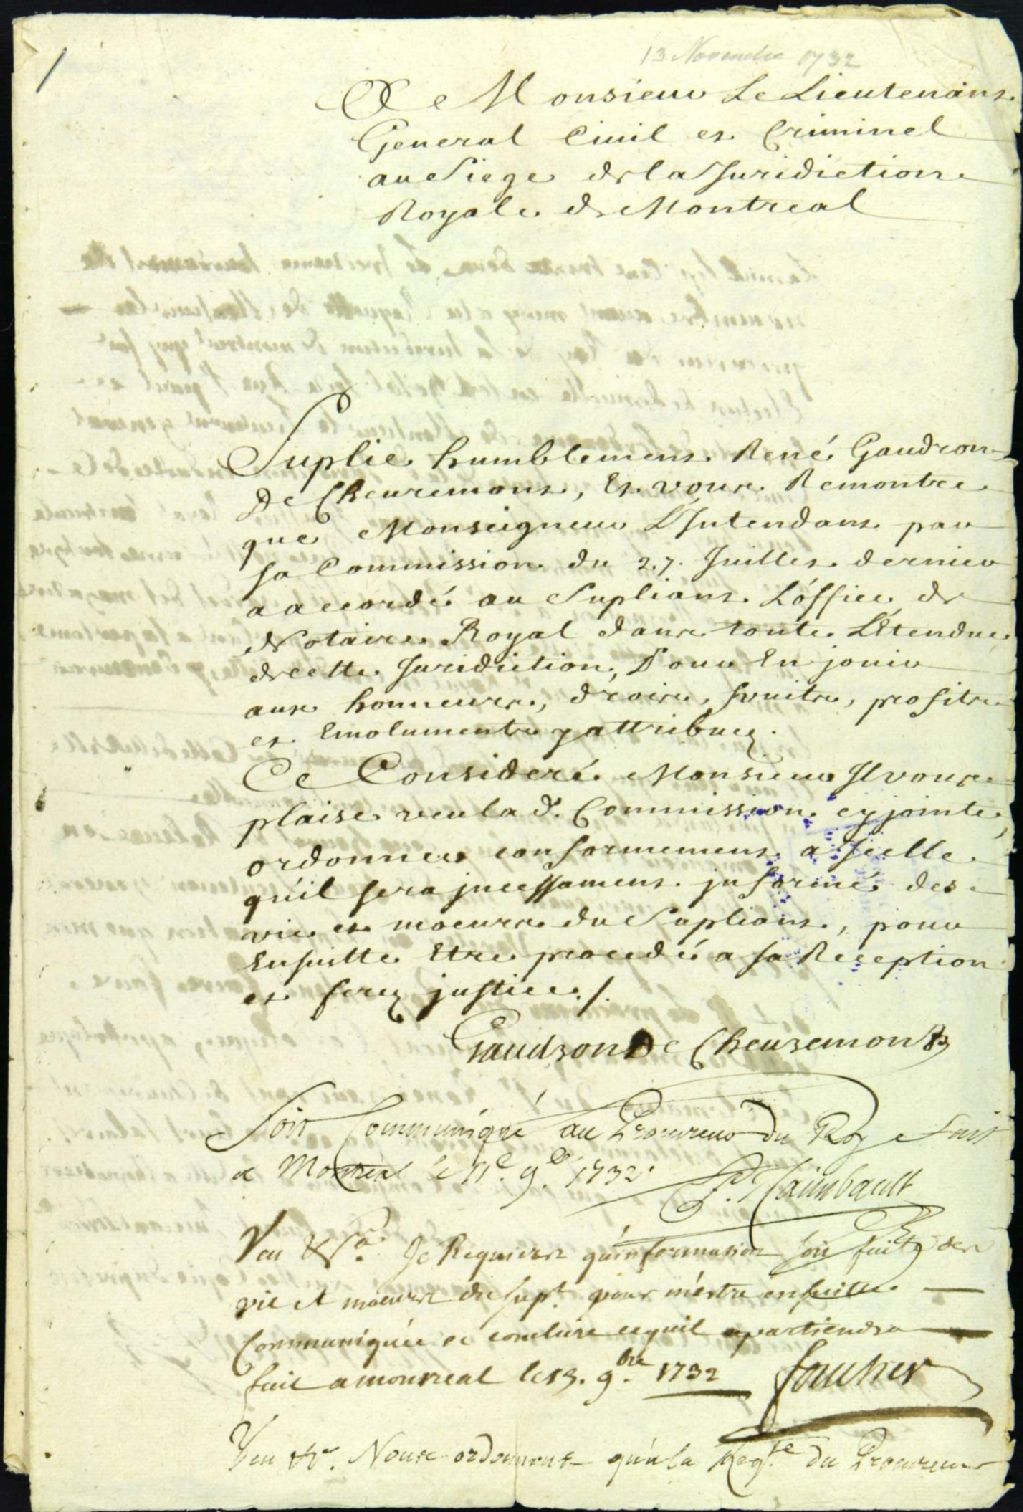 13 Novembre 1732
A Monsieur Le Lieutenant
General Civil et Criminel
au Siege de la Juridiction
Royale de Montreal
Suplie humblement René Gaudron
De Chevremont, Et vous Remontre
que Monseigneur L'Intendant par
sa Commission du 27. Juillet dernier
a accordé au Supliant L'office de
Notaire Royal dans toute L'Etendue
de cette Juridiction, Pour En jouir
aux honneurs, droits, fruits, profits
et Emoluments y attribuez.
Ce Consideré Monsieur Il vous
plaise veu la d. Commission cy jointe,
ordonner conformement a Icelle
qu'il sera incessament informé des
vie et moeurs du Supliant, pour
Ensuitte Etre procedé a sa Reception
et ferez justice /.
Gaudron De Chevremont
Soit Communiqué au Procureur du Roy fait
a Montreal le 9.b 1732
P. Raimbault
Veu &ca. Je Requiers qu'information soit faite des
vie et moeurs du supt. pour m'estre ensuitte
Communiquée et conclure cequil apartiendra
fait a monreal le 13. 9.bre 1732 foucher
Veu &c. Nous ordonnons qu'a la Reqte du Procureur